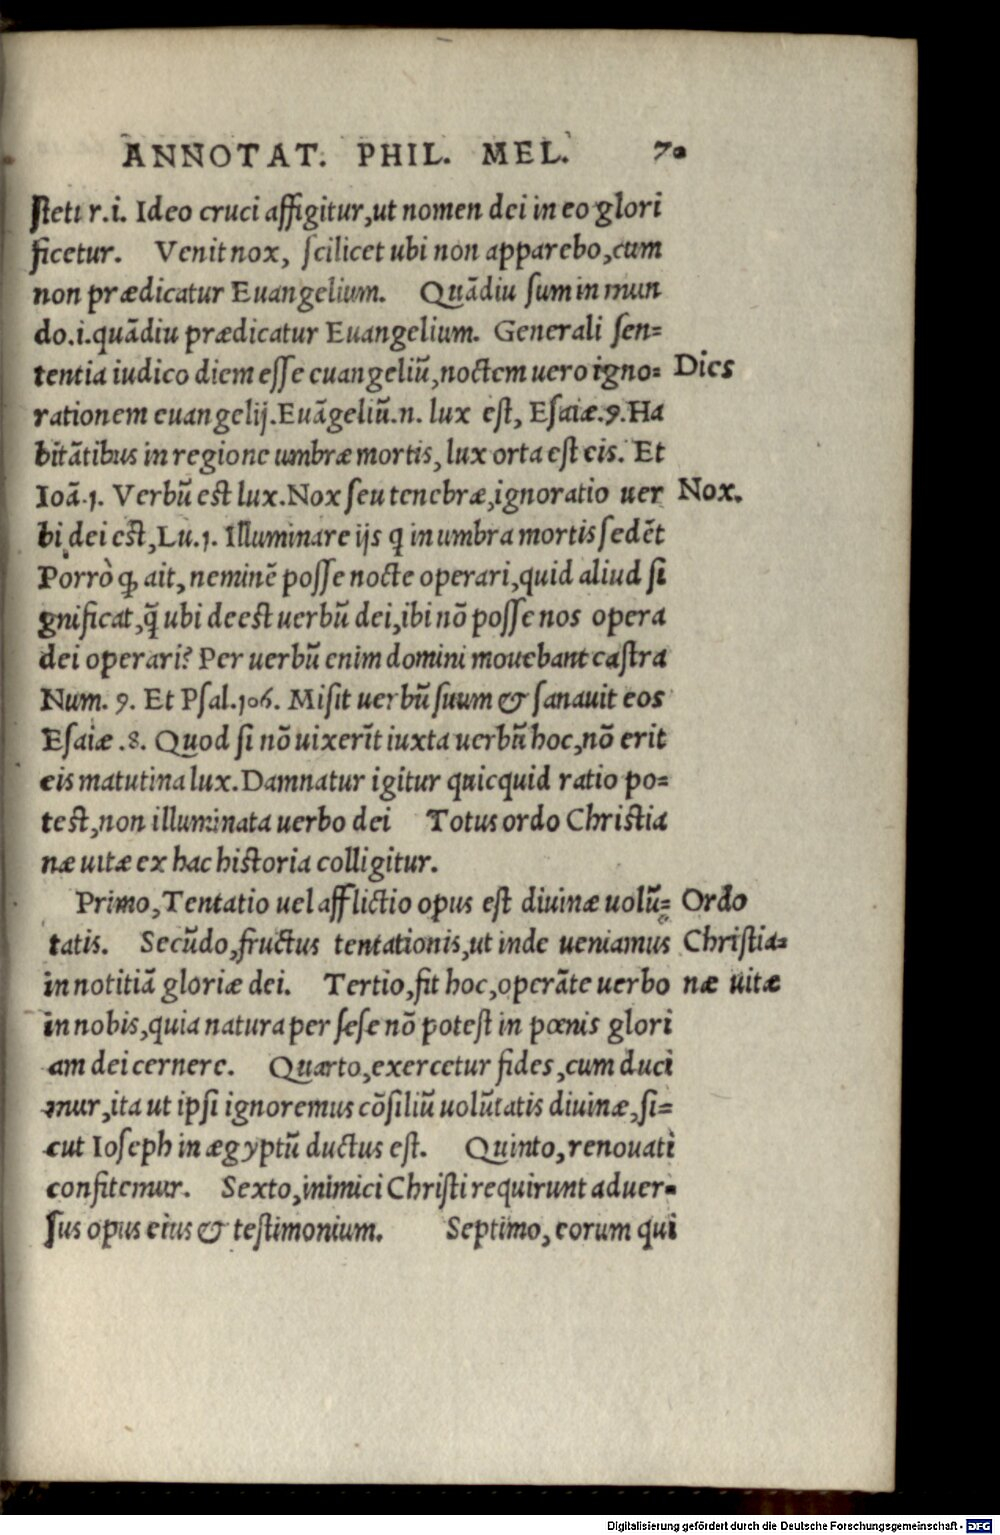 ANNOTAT. PHIL. MEL. 70
ſtetur.i. Ideo cruci affigitur,ut nomen dei in eo glori
ficetur. Venit nox, ſcilicet ubi non apparebo,cum
non prædicatur Euangelium. Quādiu ſum in mun
do.i.quādiu prædicatur Euangelium. Generali ſen=
tentia iudico diem eſſe euangeliū,noctem uero igno= Dies
rationem euangelij.Euāgeliū.n. lux eſt, Eſaiæ.9.Ha
bitātibus in regione umbræ mortis, lux orta eſt eis. Et
Ioā.1. Verbū eſt lux.Nox ſeu tenebræ,ignoratio uer Nox.
bi dei eſt,Lu.1. Illuminare ijs q in umbra mortis ſedēt
Porrò ꝙ ait, neminē poſſe nocte operari,quid aliud ſi
gnificat,q̄ ubi deeſt uerbū dei,ibi nō poſſe nos opera
dei operari? Per uerbū enim domini mouebant caſtra
Num. 9. Et Pſal.106. Miſit uerbū ſuum & ſanauit eos
Eſaiæ .8. Quod ſi nō uixerīt iuxta uerbū hoc,nō erit
eis matutina lux.Damnatur igitur quicquid ratio po=
teſt,non illuminata uerbo dei Totus ordo Chriſtia
næ uitæ ex hac hiſtoria colligitur.
Primo,Tentatio uel afflictio opus eſt diuinæ uolū= Ordo
tatis. Secūdo,fructus tentationis,ut inde ueniamus Chriſtia=
in notitiā gloriæ dei. Tertio,fit hoc,operāte uerbo næ uitæ
in nobis,quia natura per ſeſe nō poteſt in pœnis glori
am dei cernere. Quarto,exercetur fides,cum duci
mur,ita ut ipſi ignoremus cōſiliū uolūtatis diuinæ,ſi=
cut Ioſeph in ægyptū ductus eſt. Quinto,renouati
confitemur. Sexto,inimici Chriſti requirunt aduer=
ſus opus eius & teſtimonium. Septimo, eorum qui
Digitalisierung gefördert durch die Deutsche Forschungsgemeinschaft - DFG